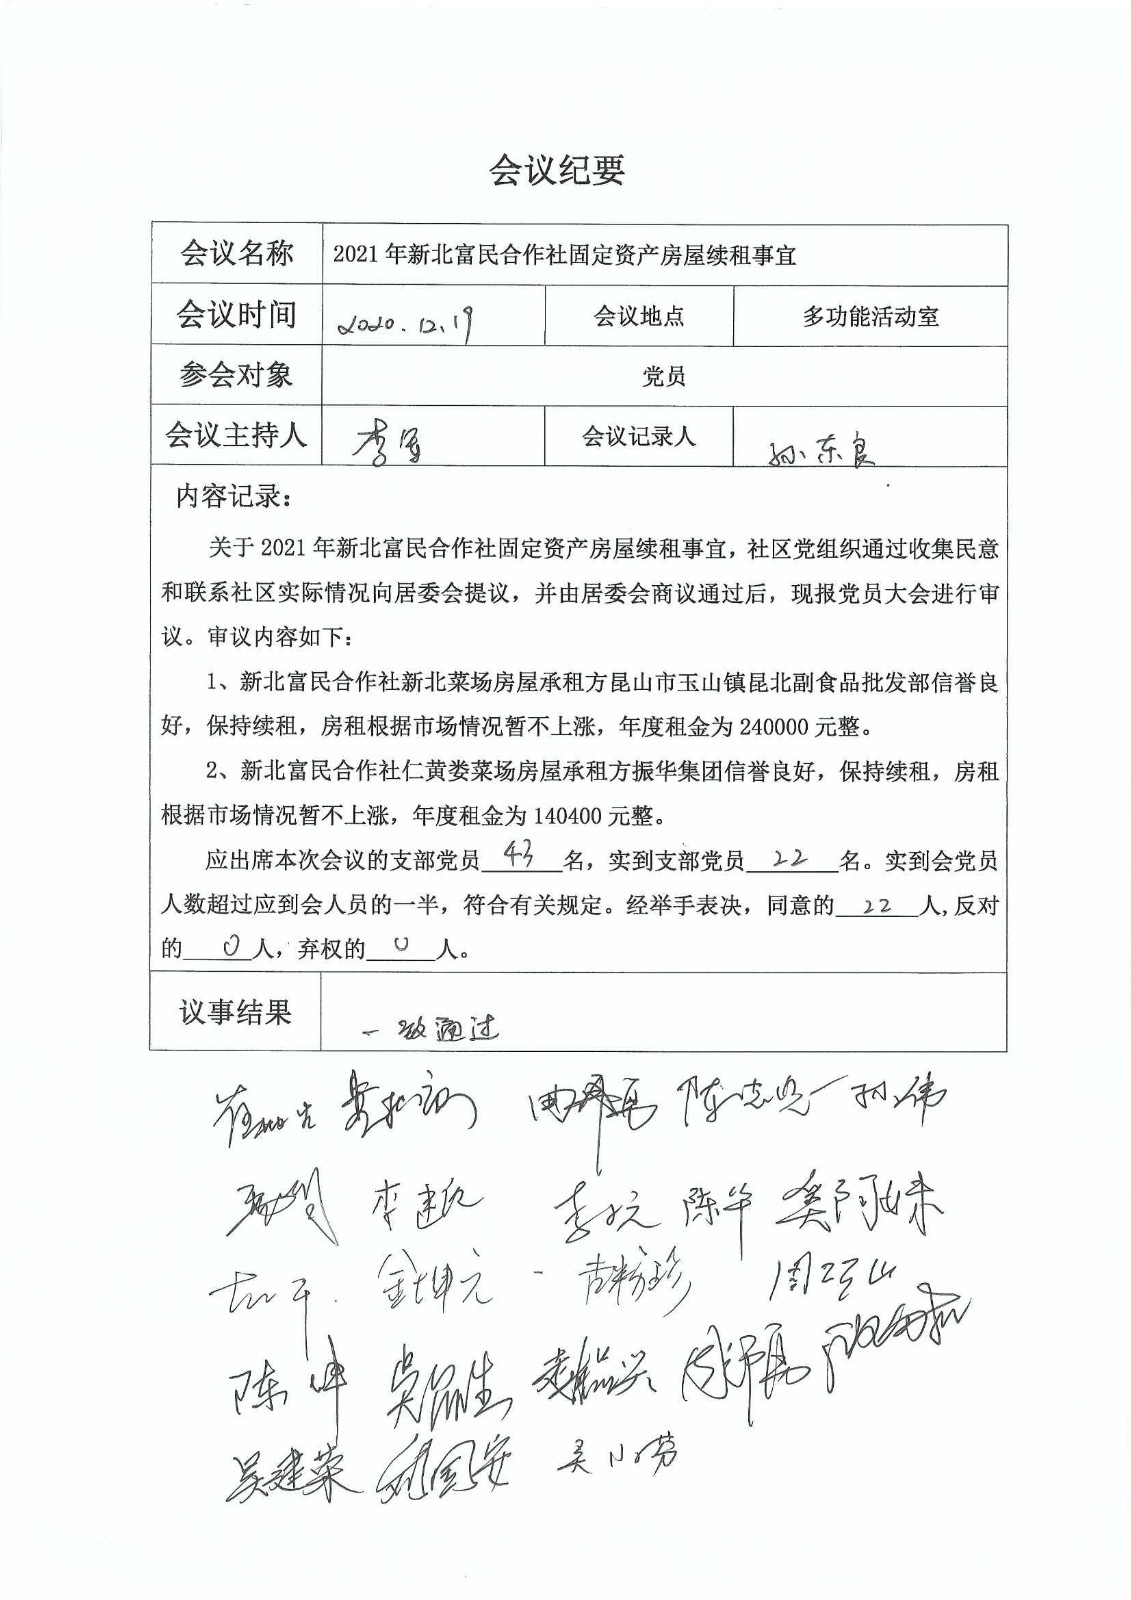 会议纪要
会议名称 2021年新北富民合作社固定资产房屋续租事宜
会议时间 2020.12.19 会议地点 多功能活动室
参会对象 党员
会议主持人 李军 会议记录人 孙东良
内容记录：
关于2021年新北富民合作社固定资产房屋续租事宜，社区党组织通过收集民意
和联系社区实际情况向居委会提议，并由居委会商议通过后，现报党员大会进行审
议。审议内容如下：
1、新北富民合作社新北菜场房屋承租方昆山市玉山镇昆北副食品批发部信誉良
好，保持续租，房租根据市场情况暂不上涨，年度租金为240000元整。
2、新北富民合作社仁黄娄菜场房屋承租方振华集团信誉良好，保持续租，房租
根据市场情况暂不上涨，年度租金为140400元整。
应出席本次会议的支部党员 43 名，实到支部党员 22 名。实到会党员
人数超过应到会人员的一半，符合有关规定。经举手表决，同意的 22 人,反对
的 0 人，弃权的 0 人。
议事结果 一致通过
陈志 孙伟
李建 李元 陈华 龚阿妹
金坤元 吉粉珍 周
陈坤 吴品生
吴建荣 国安 吴小芳